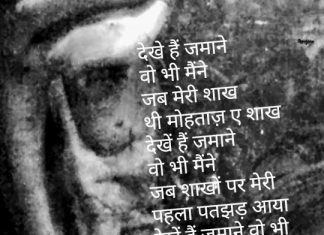 देखे हैं जमाने
वो भी मैंने
जब मेरी शाख
थी मोहताज़ ए शाख
देखें हैं जमाने
वो भी मैंने
जब शाखों पर मेरी
पहला पतझड़ आया
देखें हैं जमाने वो भी